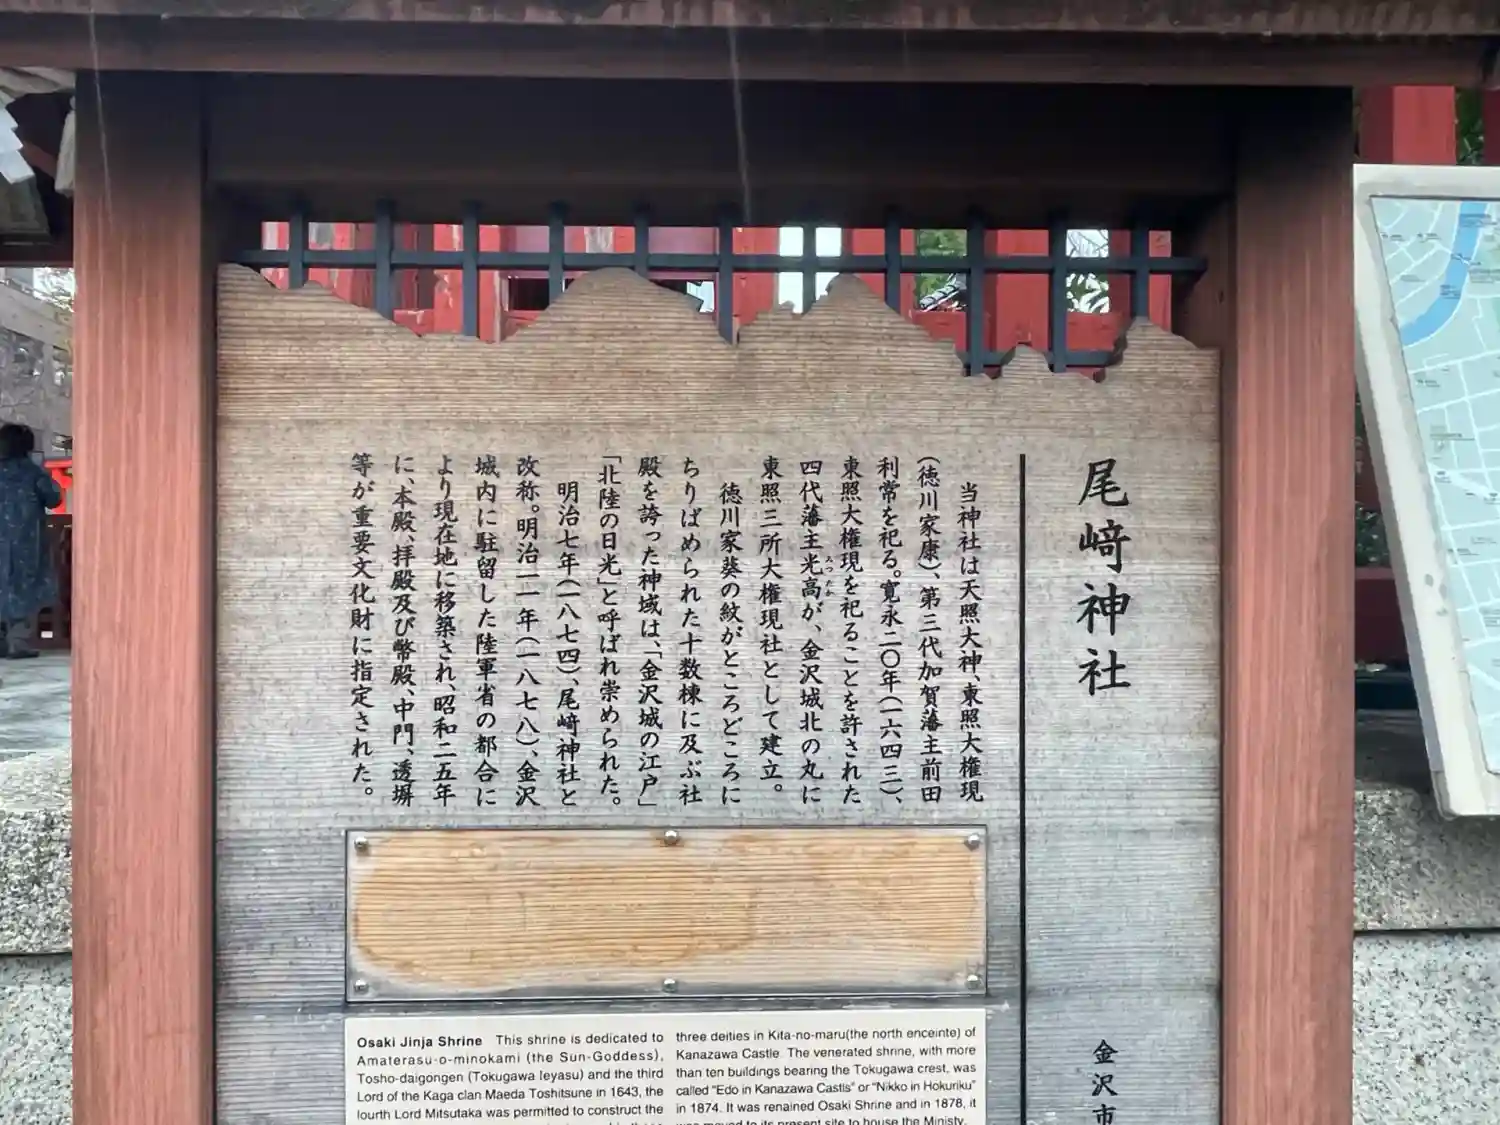 尾﨑神社
当神社は天照大神、東照大権現
(徳川家康)、第三代加賀藩主前田
利常を祀る。寛永二〇年(一六四三)、
東照大権現を祀ることを許された
四代藩主光高が、金沢城北の丸に
みつたか
東照三所大権現社として建立。
徳川家葵の紋がところどころに
ちりばめられた十数棟に及ぶ社
殿を誇った神域は、「金沢城の江戸」
「北陸の日光」と呼ばれ崇められた。
明治七年(一八七四)、尾﨑神社と
改称。明治一一年(一八七八)、金沢
城内に駐留した陸軍省の都合に
より現在地に移築され、昭和二五年
に、本殿、拝殿及び幣殿、中門、透塀
等が重要文化財に指定された。
金沢市
Osaki Jinja Shrine This shrine is dedicated to
Amaterasu-o-minokami (the Sun-Goddess),
Tosho-daigongen (Tokugawa Ieyasu) and the third
Lord of the Kaga clan Maeda Toshitsune in 1643, the
fourth Lord Mitsutaka was permitted to construct the
three deities in Kita-no-maru(the north enceinte) of
Kanazawa Castle. The venerated shrine, with more
than ten buildings bearing the Tokugawa crest, was
called "Edo in Kanazawa Castls" or "Nikko in Hokuriku"
in 1874. It was renained Osaki Shrine and in 1878, it
was moved to its present site to house the Ministy.